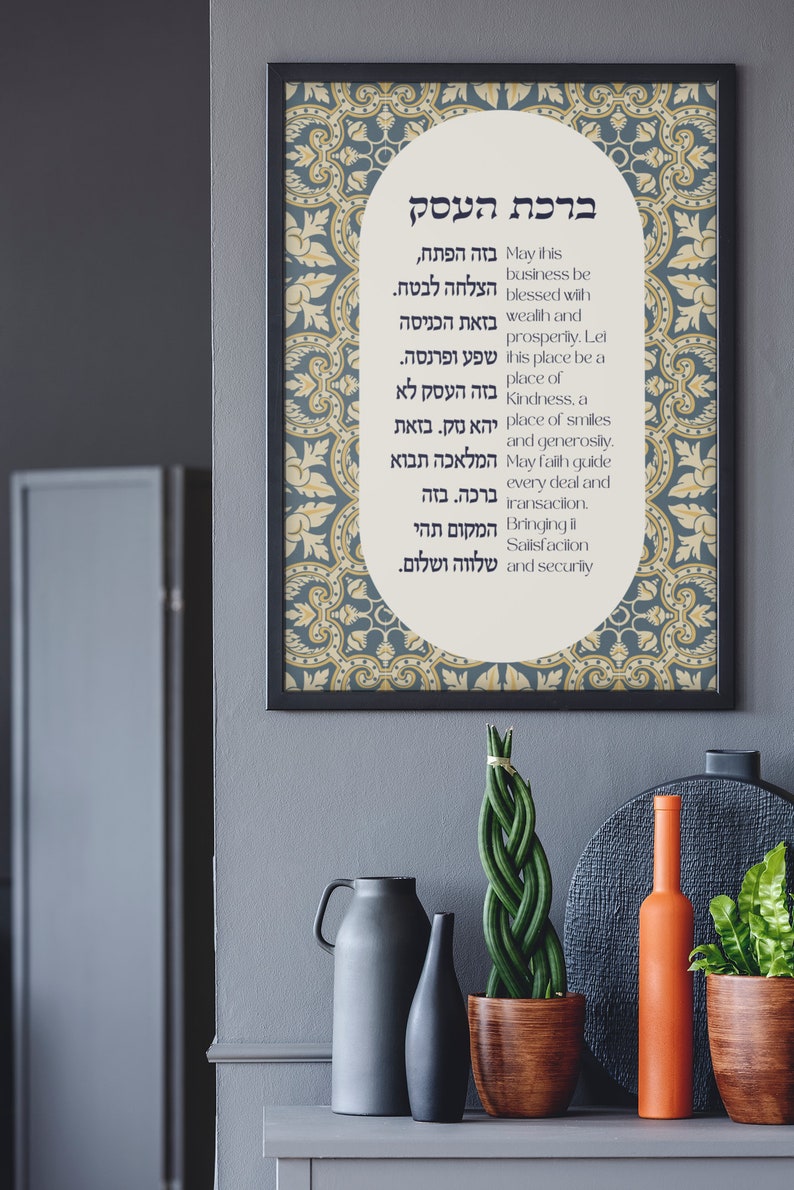 ברכת העסק
בזה הפתח,
הצלחה לבטח.
בזאת הכניסה
שפע ופרנסה.
בזה העסק לא
יהא נזק. בזאת
המלאכה תבוא
ברכה. בזה
המקום תהי
שלווה ושלום.
May this
business be
blessed with
wealth and
prosperity. Let
this place be a
place of
Kindness, a
place of smiles
and generosity.
May faith guide
every deal and
transaction.
Bringing it
Satisfaction
and security